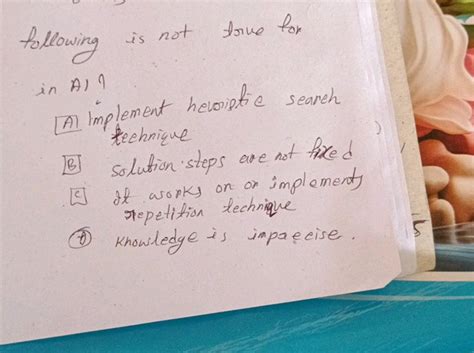 following is not true for
in AI?
[A] Implement heuriptic search
technique
[B] solution steps are not fixed
[C] It works on or implements
repetition technique
(D) Knowledge is impaecise.
5